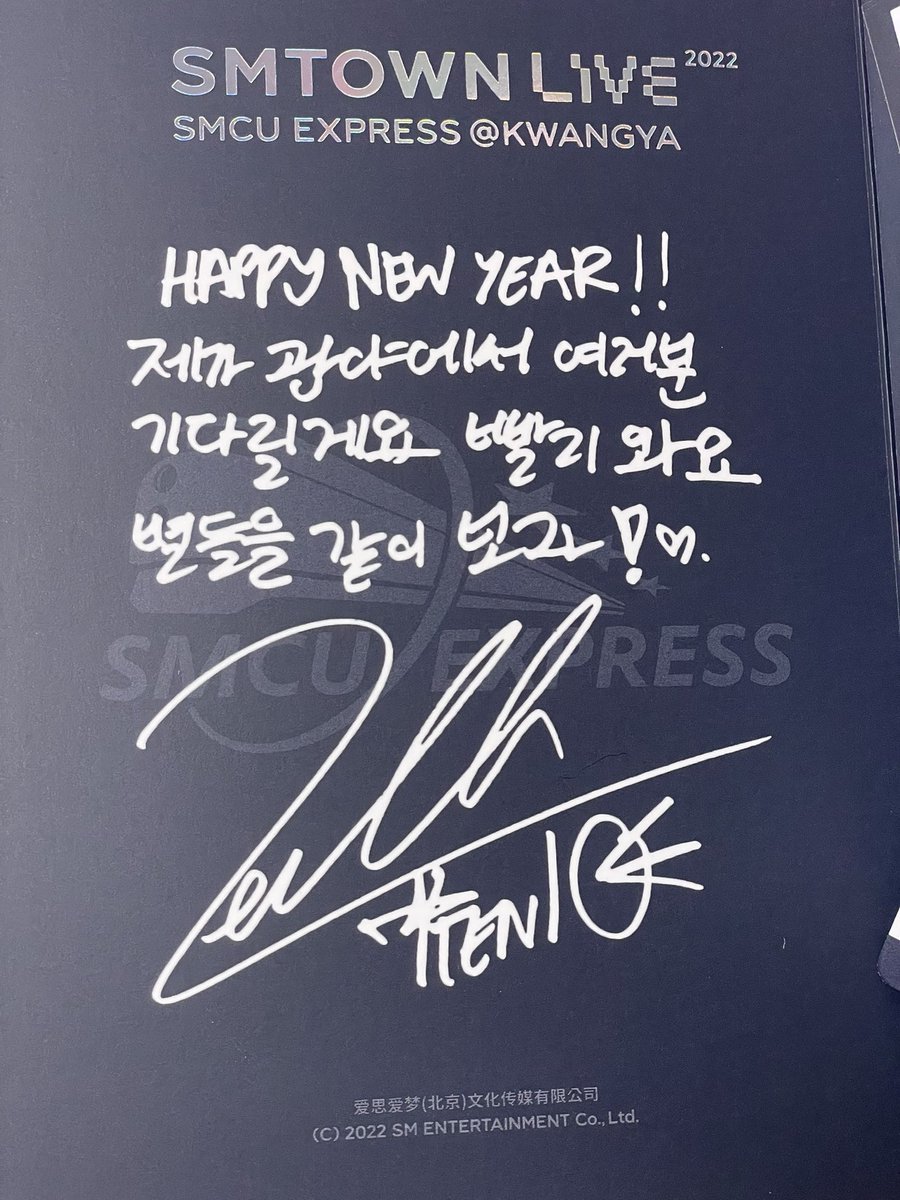 SMTOWN LIVE 2022
SMCU EXPRESS @KWANGYA
HAPPY NEW YEAR!!
제가 광야에서 여러분
기다릴게요 빨리 와요
변들을 같이 보자!♡.
SMCU EXPRESS
#TEN10
爱思爱梦(北京)文化传媒有限公司
(C) 2022 SM ENTERTAINMENT Co.,Ltd.